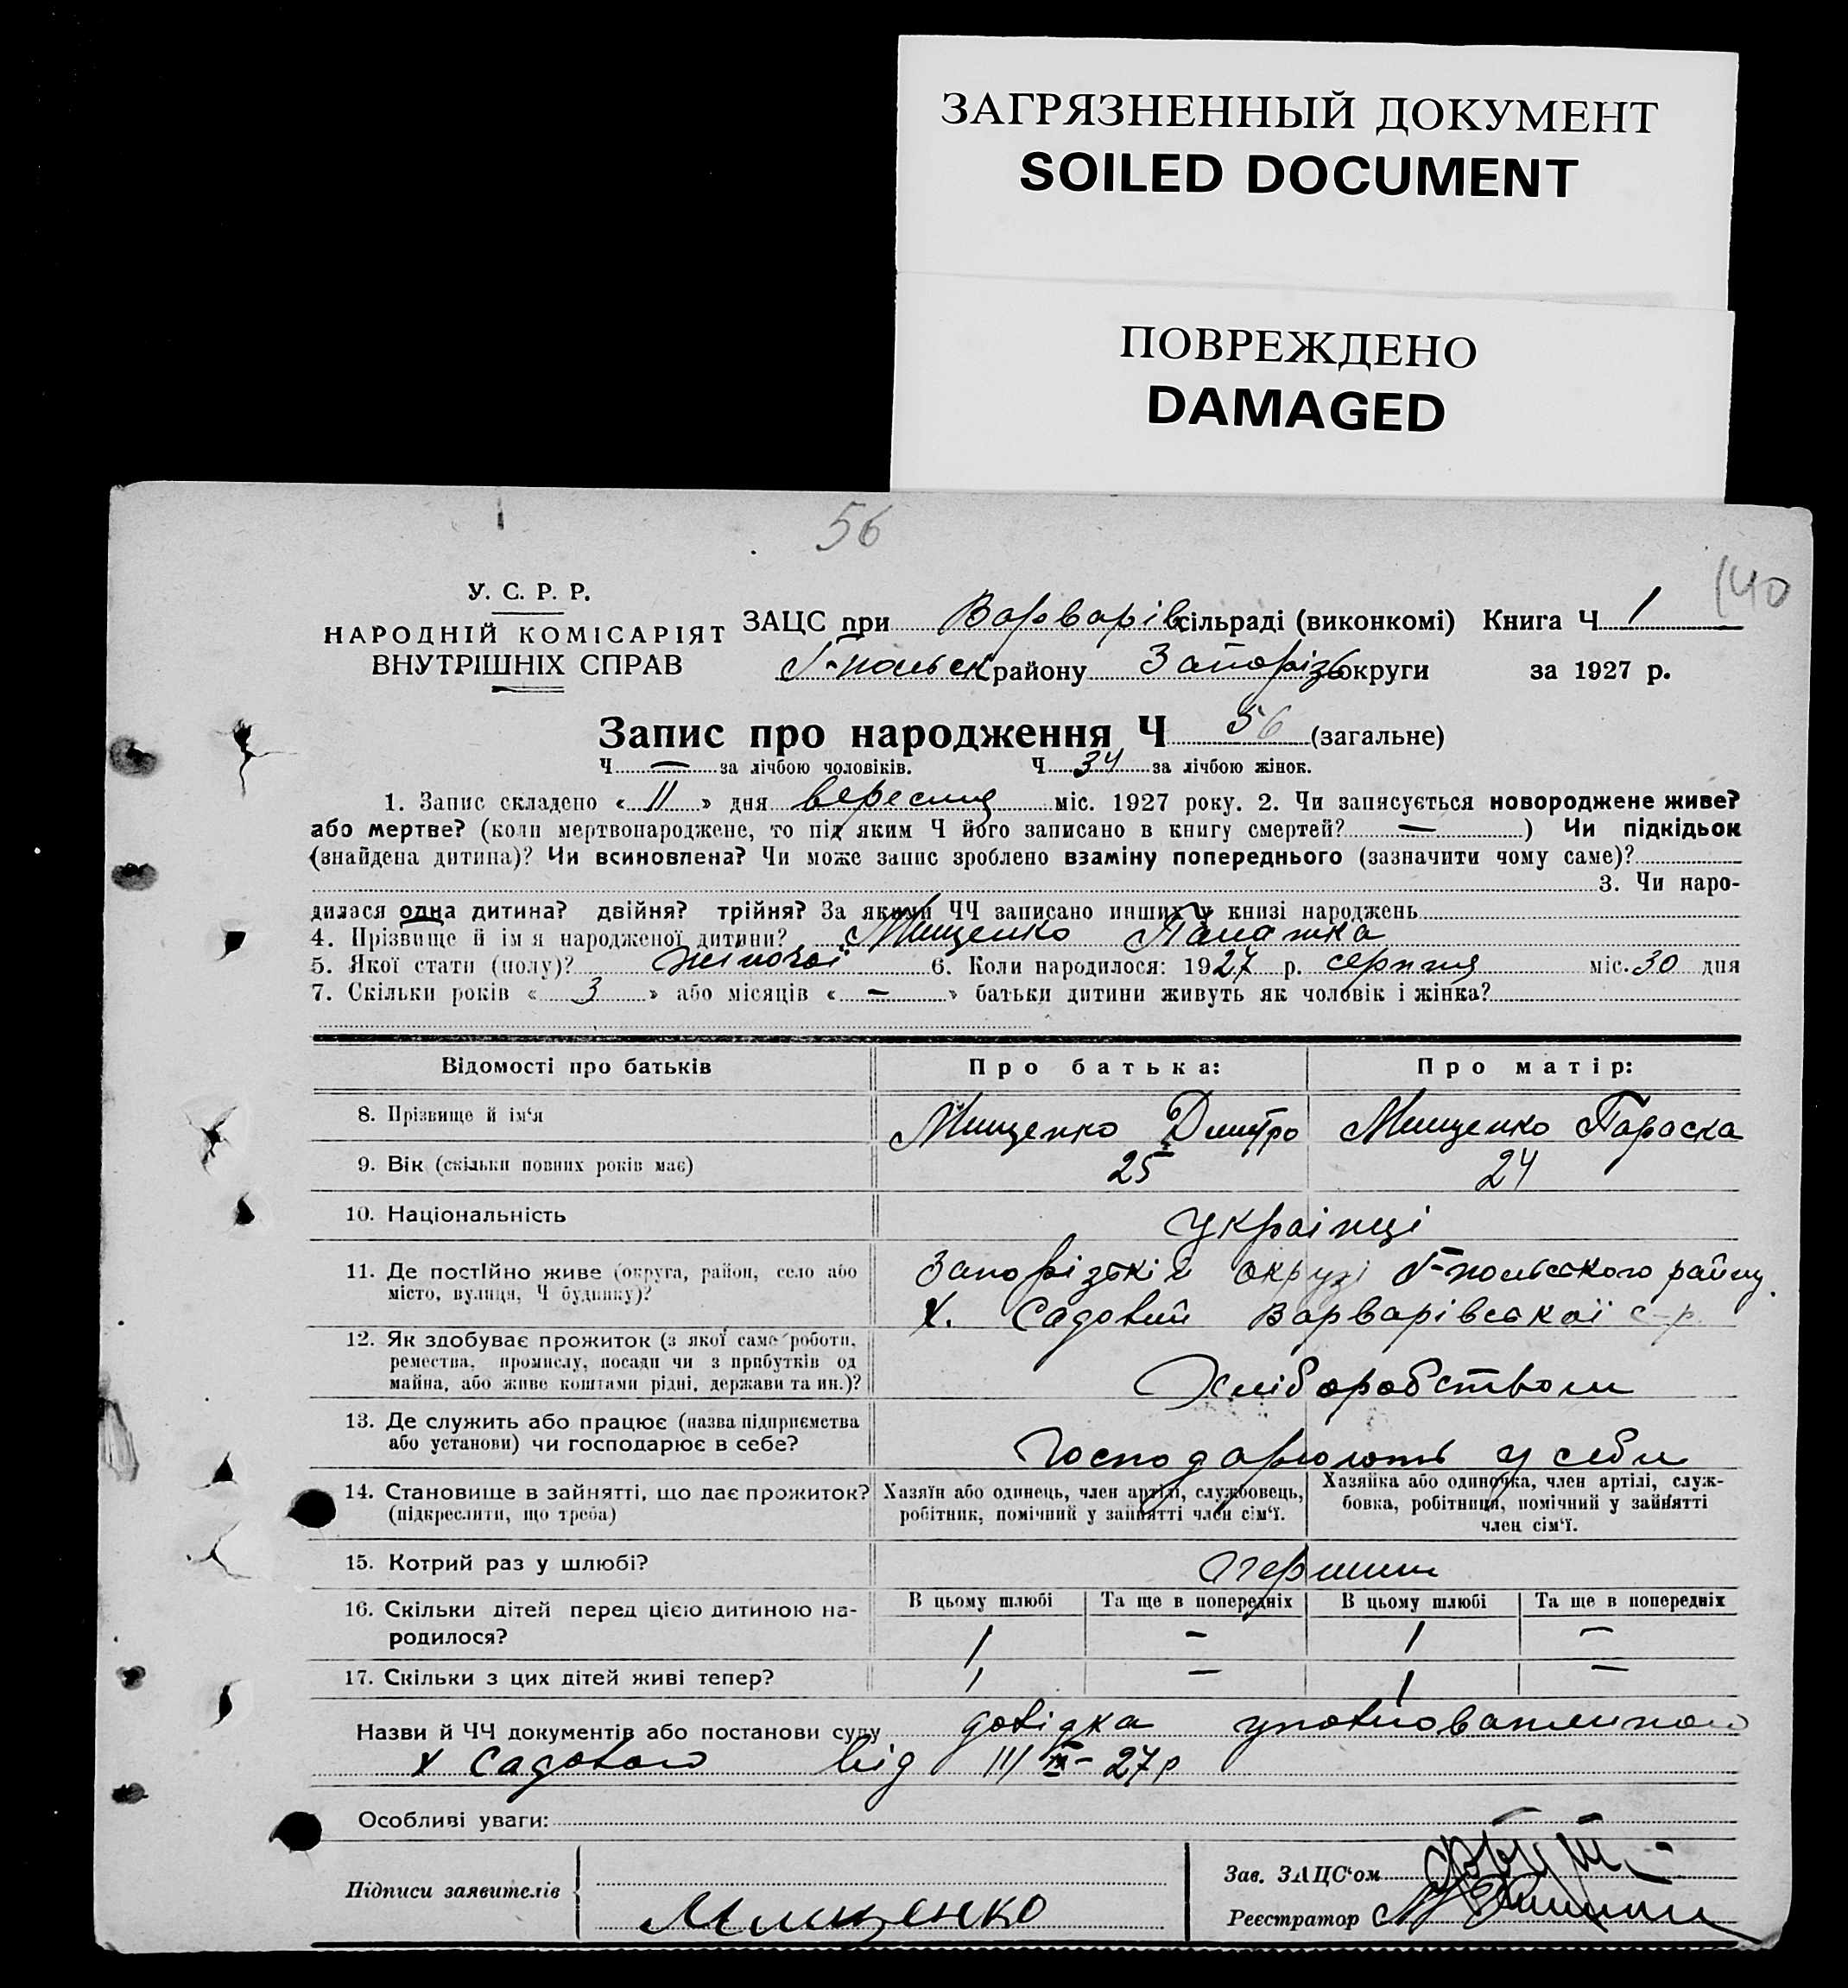 ЗАГРЯЗНЕННЫЙ ДОКУМЕНТ
SOILED DOCUMENT
ПОВРЕЖДЕНО
DAMAGED
56
140
У. С. Р. Р.
НАРОДНІЙ КОМІСАРІЯТ
ВНУТРІШНІХ СПРАВ
ЗАЦС при Варварів сільраді (виконкомі) Книга Ч 1
Г-польськ району Запорізь округи за 1927 р.
Запис про народження Ч 56 (загальне)
Ч — за лічбою чоловіків. Ч 34 за лічбою жінок.
1. Запис складено « 11 » дня вересня міс. 1927 року. 2. Чи записується новороджене живе?
або мертве? (коли мертвонароджене, то під яким Ч його записано в книгу смертей? — ) Чи підкідьок
(знайдена дитина)? Чи всиновлена? Чи може запис зроблено взаміну попереднього (зазначити чому саме)?
3. Чи наро-
дилася одна дитина? двійня? трійня? За якими ЧЧ записано инших у книзі народжень
4. Прізвище й ім я народженої дитини? Мищенко Панажка
5. Якої стати (полу)? жіночої 6. Коли народилося: 1927 р. серпня міс. 30 дня
7. Скільки років « 3 » або місяців « — » батьки дитини живуть як чоловік і жінка?
Відомості про батьків Про батька: Про матір:
8. Прізвище й ім‘я Мищенко Дмитро Мищенко Параска
9. Вік (скільки повних років має) 25 24
10. Національність українці
11. Де постійно живе (округа, район, село або Запорізькій окрузі Г-польського району
місто, вулиця, Ч будинку)? х. Садовий Варварівської с-р.
12. Як здобуває прожиток (з якої саме роботи,
ремества, промислу, посади чи з прибутків од
майна, або живе коштами рідні, держави та ин.)? Хліборобством
13. Де служить або працює (назва підприємства
або установи) чи господарює в себе? Господарюють у себе
14. Становище в зайнятті, що дає прожиток? Хазяїн або одинець, член артілі, службовець, Хазяйка або одиночка, член артілі, служ-
(підкреслити, що треба) робітник, помічний у зайнятті член сім‘ї. бовка, робітниця, помічний у зайнятті
член сім‘ї.
15. Котрий раз у шлюбі? перший
16. Скільки дітей перед цією дитиною на- В цьому шлюбі Та ще в попередніх В цьому шлюбі Та ще в попередніх
родилося? 1 — 1 —
17. Скільки з цих дітей живі тепер? 1 — 1 —
Назви й ЧЧ документів або постанови суду довідка уповноваженого
х Садового від 11/IX-27р
Особливі уваги:
Підписи заявителів Мищенко
Зав. ЗАЦС‘ом
Реєстратор